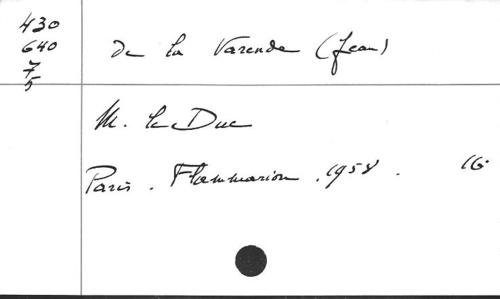 430
640
7
5
De la Varende (Jean)
M. le Duc
Paris. Flammarion. 1958. 16.